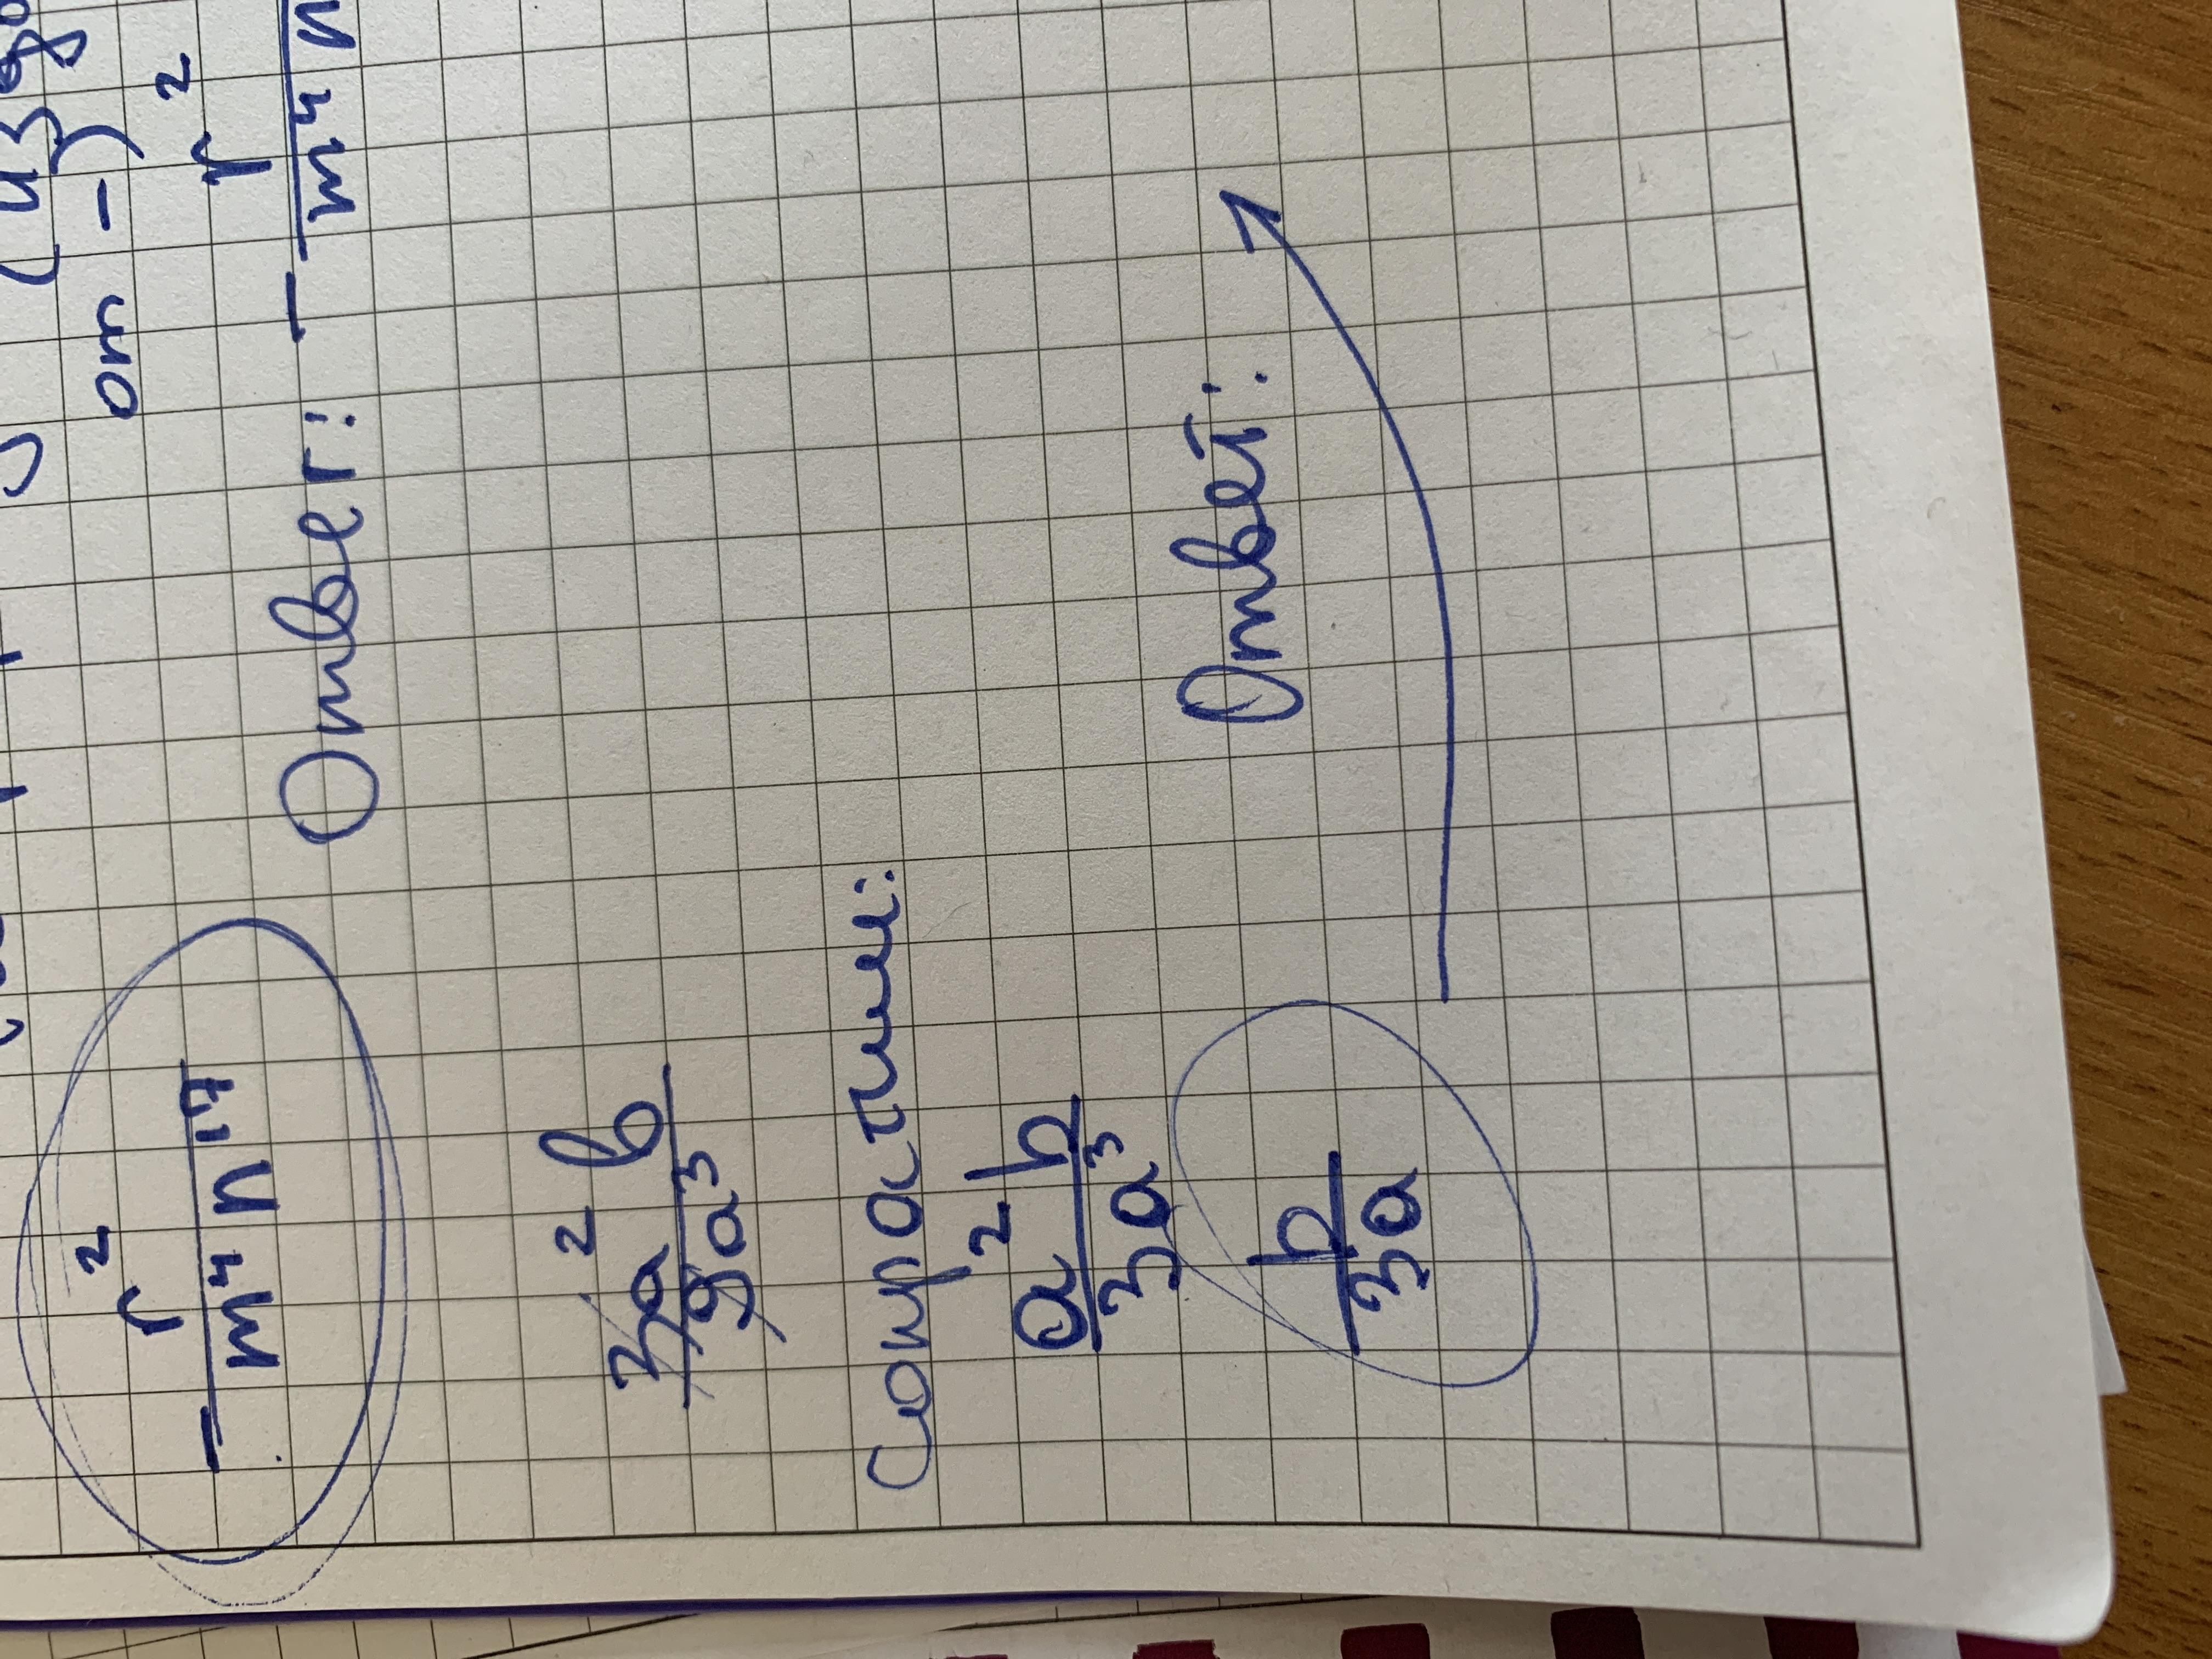 (изб
от -)
- r² / m⁴n¹⁴
Ответ: - r² / m⁴n
3a²b / 9a³
Сократим:
a²b / 3a³
b / 3a
Ответ: